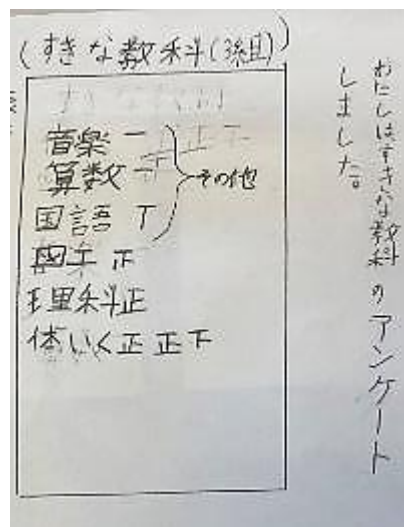 (すきな教科(3組))
音楽 一
算数 一
国語 T
その他
図工 正
理科 正
体いく 正 正 下
わたしはすきな教科のアンケート
しました。